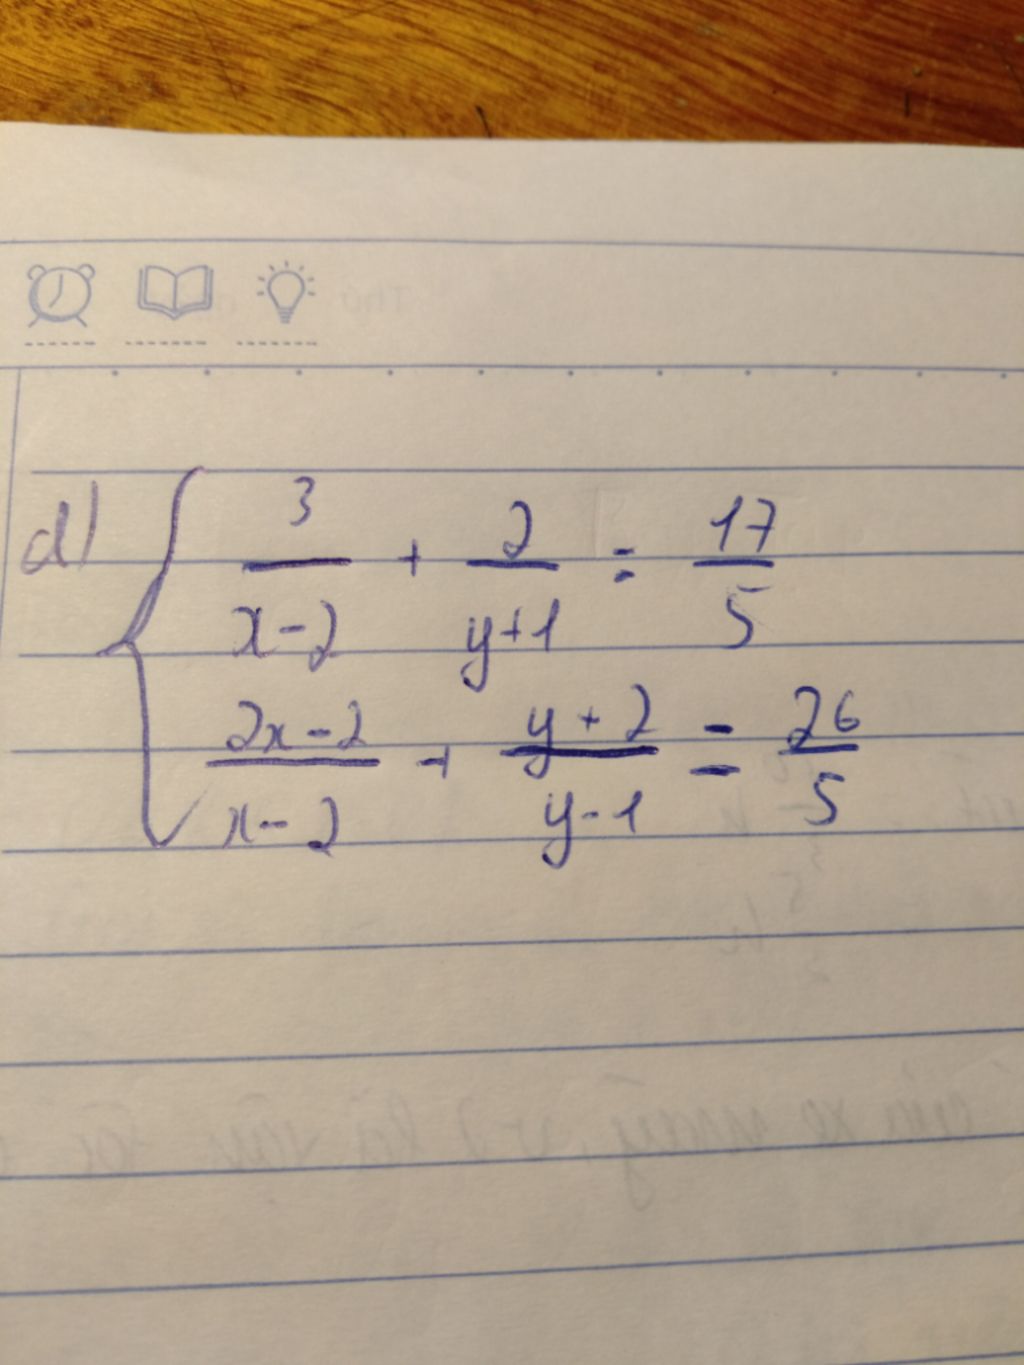 d) { 3/(x-2) + 2/(y+1) = 17/5
(2x-2)/(x-2) + (y+2)/(y-1) = 26/5